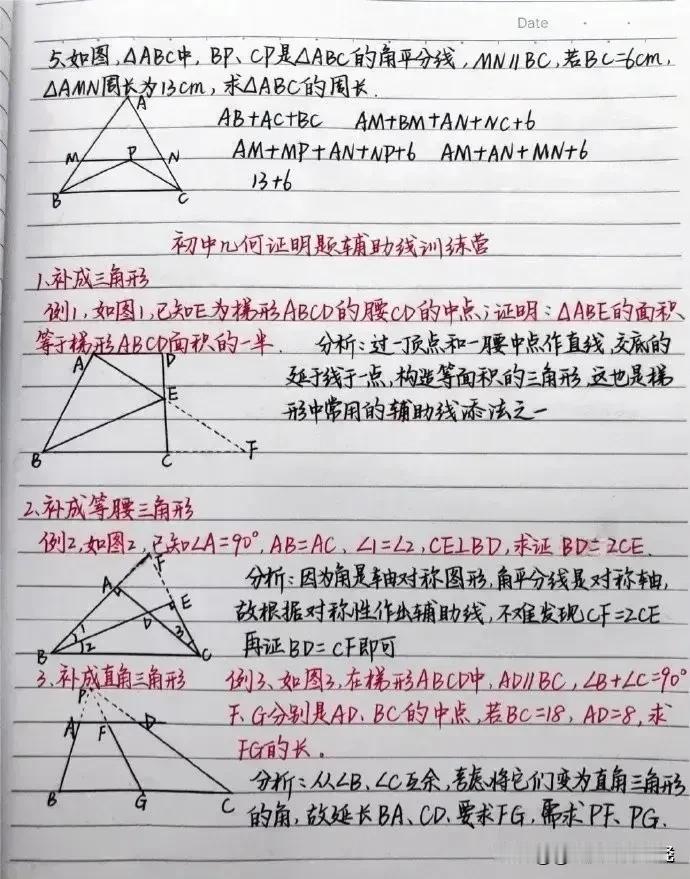 Date
5.如图,△ABC中, BP、CP是△ABC的角平分线, MN∥BC, 若BC=6cm,
△AMN周长为13cm, 求△ABC的周长.
A
AB+AC+BC AM+BM+AN+NC+6
M P N
AM+MP+AN+NP+6 AM+AN+MN+6
B C
13+6
初中几何证明题辅助线训练营
1.补成三角形
例1, 如图1,已知E为梯形ABCD的腰CD的中点;证明:△ABE的面积
等于梯形ABCD面积的一半.
分析:过一顶点和一腰中点作直线,交底的
延于线于一点,构造等面积的三角形.这也是梯
形中常用的辅助线添法之一
A D
E
B C F
2.补成等腰三角形
例2,如图2,已知∠A=90°, AB=AC、∠1=∠2, CE⊥BD, 求证 BD=2CE.
分析:因为角是轴对称图形,角平分线是对称轴,
故根据对称性作出辅助线,不难发现CF=2CE
再证BD=CF即可
F
A E
D
1 2 3
B C
3.补成直角三角形
例3、如图3,在梯形ABCD中, AD∥BC, ∠B+∠C=90°
F、G分别是AD、BC的中点,若BC=18, AD=8,求
FG的长.
分析:从∠B、∠C互余,考虑将它们变为直角三角形
的角,故延长BA、CD、要求FG, 需求PF、PG.
P
A F D
B G C